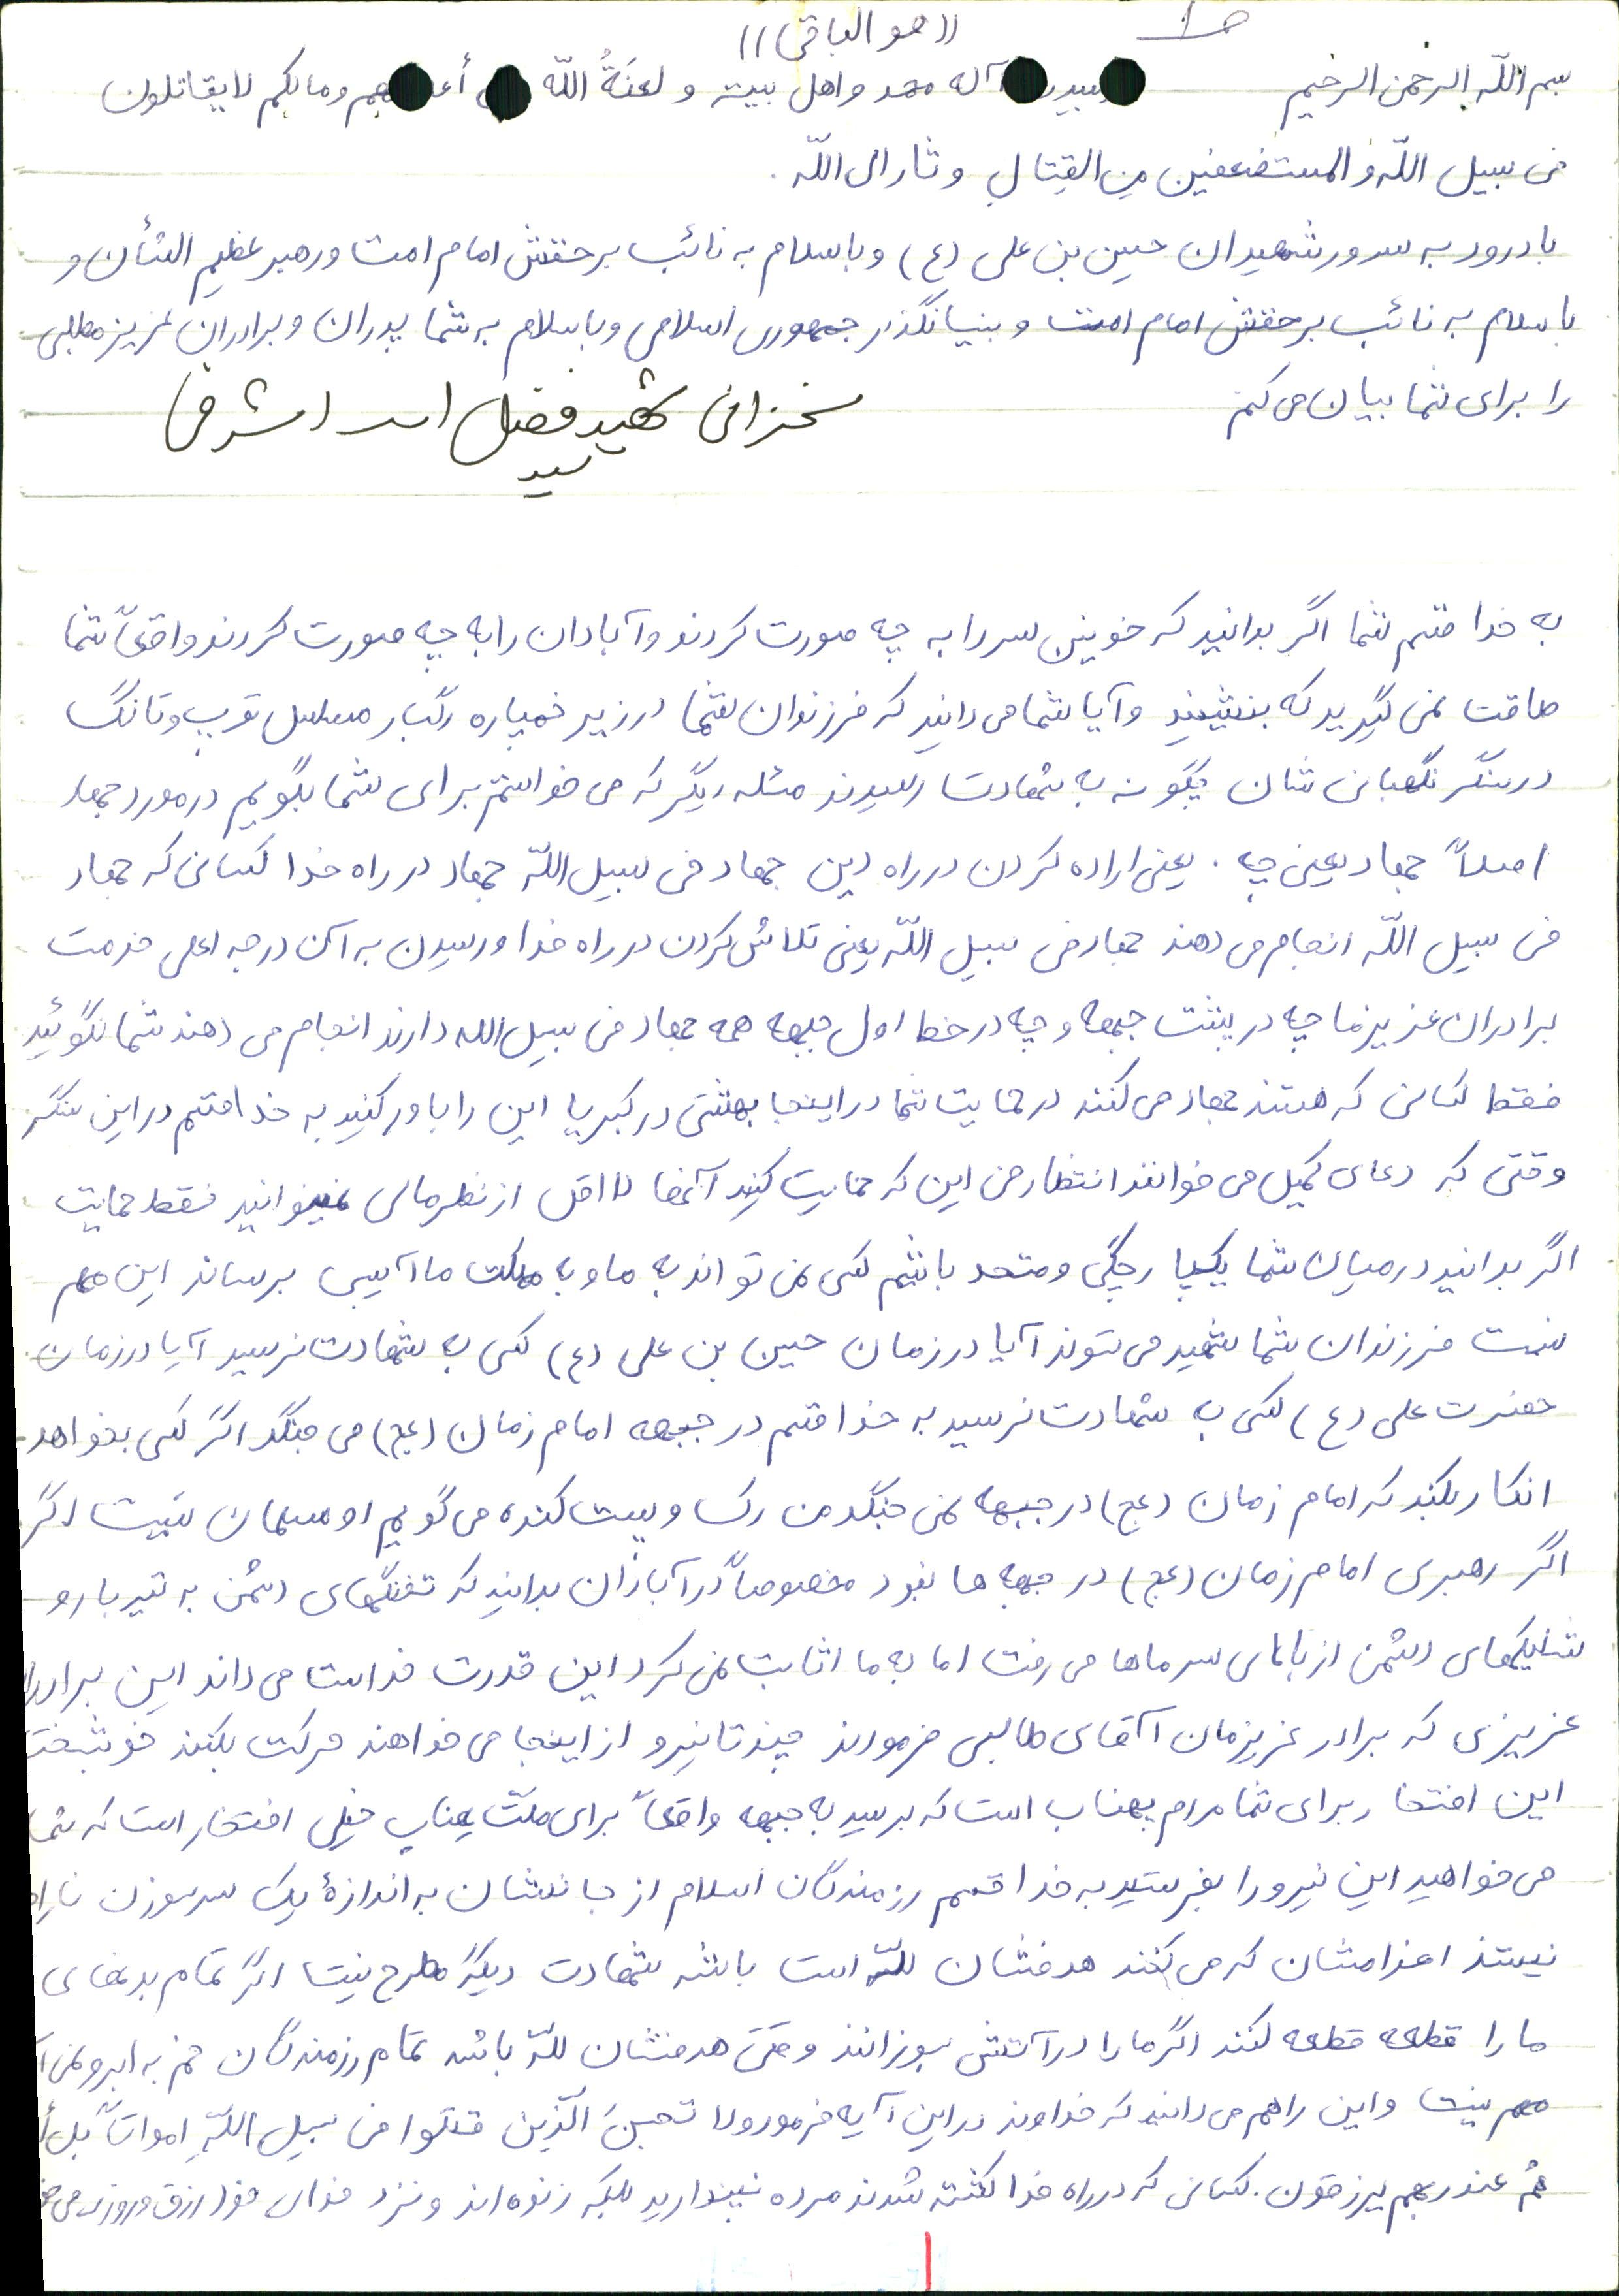 ((هو الباقی))
بسم اللّه الرحمن الرحیم آله محمد و اهل بیته و لعنَةُ اللّه و مالکم لایقاتلون
فی سبیل اللّه و المستضعفین مِن القِتالِ و ثار الی اللّه.
با درود به سرور شهیدان حسین بن علی (ع) و با سلام به نائب بر حقش امام امت و رهبر عظیم الشأن و
با سلام به نائب بر حقش امام امت و بنیانگذار جمهوری اسلامی و با سلام به شما پدران و برادران عزیز مطلبی
را برای شما بیان می کنم
سخنرانی شهید سید فضل اله اشرفی
به خدا قسم شما اگر بدانید که خونین سر را به چه صورت کردند و آبادان را به چه صورت کردند واقعاً شما
طاقت نمی گیرید که بنشینید و آیا شما می دانید که فرزندان شما در زیر خمپاره رگبار مسلسل توپ و تانگ
در سنگر نگهبانی شان چگونه به شهادت رسیدند مسئله دیگر که می خواستم برای شما بگویم در مورد جهاد
اصلاً جهاد یعنی چه . یعنی اراده کردن در راه دین جهاد فی سبیل اللّه جهاد در راه خدا کسانی که جهاد
فی سبیل اللّه انجام می دهند جهاد فی سبیل اللّه یعنی تلاش کردن در راه خدا و رسیدن به آن درجه اعلی خدمت
برادران عزیز ما چه در پشت جبهه و چه در خط اول جبهه همه جهاد فی سبیل الله دارند انجام می دهند شما نگوئید
فقط کسانی که هستند جهاد می کنند در حمایت شما در اینجا بهشتی در کبریا این را باور کنید به خدا قسم در این سنگر
وقتی که دعای کمیل می خوانند انتظار می این که حمایت کنید آنها لااقل از نظر مالی نمیتوانید فقط حمایت
اگر بدانید در میان شما یکپارچگی و متحد باشیم کسی نمی تواند به ما و به مملکت ما آسیبی برساند این مهم
نیست فرزندان شما شهید می شوند آیا در زمان حسین بن علی (ع) کسی به شهادت نرسید آیا در زمان
حضرت علی (ع) کسی به شهادت نرسید به خدا قسم در جبهه امام زمان (عج) می جنگد اگر کسی بخواهد
انکار بکند که امام زمان (عج) در جبهه نمی جنگد من رک و پوست کنده می گویم او مسلمان نیست اگر
اگر رهبری امام زمان (عج) در جبهه ها نبود مخصوصاً در آبادان بدانید که تفنگهای دشمن به تیر بار و
شلیکهای دشمن از بالای سر ماها می رفت اما به ما اثابت نمی کرد این قدرت خداست می داند این برادران
عزیزی که برادر عزیزمان آقای طالبی فرمودند چند تا نیرو از اینجا می خواهند حرکت بکنند خوشبختـ
این افتخار برای شما مردم بهناب است که برسید به جبهه واقعاً برای ملت بهناب خیلی افتخار است که شما
می خواهید این نیرو را بفرستید به خدا قسم رزمندگان اسلام از جانشان به اندازهٔ یک سر سوزن نارا
نیستند اعزامشان که می کنند هدفشان للّه است باشد شهادت دیگر مطرح نیست اگر تمام بدنهای
ما را قطعه قطعه کنند اگر ما را در آتش بسوزانند وقتی هدفشان للّه باشد تمام رزمندگان خم به ابرو نمی آ
مهم نیست و این را هم می دانید که خداوند در این آیه فرمود ولا تحسبنَ الّذین قتلوا فی سبیل اللّهِ امواتاً بل أ
هُم عند ربهم یرزقون. کسانی که در راه خدا کشته شدند مرده نپندارید بلکه زنده اند و نزد خدای خود ارزق و روزی می خو